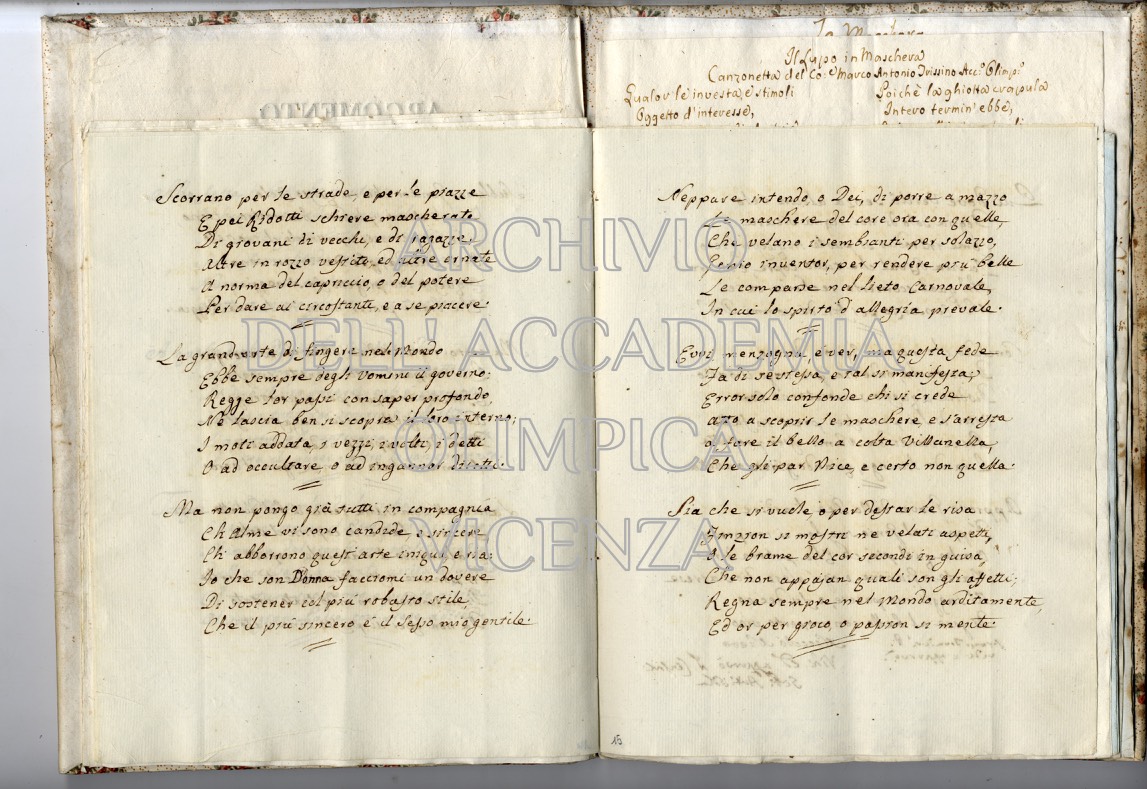 ARGOMENTO
Il Lupo in Maschera
Canzonetta del Co: Marco Antonio Trissino Acc.º Olimp.º
Qualor le investa, e stimoli
Oggetto d'interesse,
Poichè la ghiotta crapula
Intero termin' ebbe,
Scorrano per le strade, e per le piazze
E pei Ridotti schiere mascherate
Di giovani di vecchi, e di ragazze,
Altre in rozzo vestito, ed altre ornate
A norma del capriccio, o del potere
Per dare ai circostanti, e a se piacere.
La grand'arte di fingere nel Mondo
Ebbe sempre degli Uomini il governo.
Regge lor passi con saper profondo,
Nè lascia ben si scopra il loro interno;
I moti addata, i vezzi, i volti, i detti
O ad occultare, o ad ingannar diretti.
Ma non pongo già tutti in compagnia
Ch'Alme vi sono candide e sincere
Ch'abborrono quest'arte iniqua, e ria;
Io che son Donna facciomi un dovere
Di sostener col più robusto stile,
Che il più sincero è il Sesso mio gentile.
Neppure intendo, o Dei, di porre a mazzo
Le maschere del core ora con quelle,
Che velano i sembianti per solazzo,
Genio inventor, per rendere più belle
Le comparse nel lieto Carnovale,
In cui lo spirto d'allegria prevale.
Evvi menzogna, è ver, ma questa fede
Fa di se stessa, e tal si manifesta;
Error solo confonde chi si crede
Atto a scoprir le maschere, e s'arresta
A fare il bello a colta Villanella,
Che gli par Nice, e certo non è quella.
Sia che si vuole, o per destar le risa
Finzion si mostri ne' velati aspetti,
O le brame del cor secondi in guisa,
Che non appajan quali son gli affetti;
Regna sempre nel Mondo arditamente,
Ed or per gioco, o passion si mente.
15
ARCHIVIO
DELL'ACCADEMIA
OLIMPICA
VICENZA